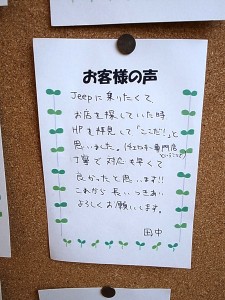 お客様の声
Jeepに乗りたくて、
お店を探していた時
HPを拝見して「ここだ!」と
思いました。(チェロキー専門店
ということで)
丁寧で対応も早くて
良かったと思います!!
これから長いつきあい
よろしくお願いします。
田中